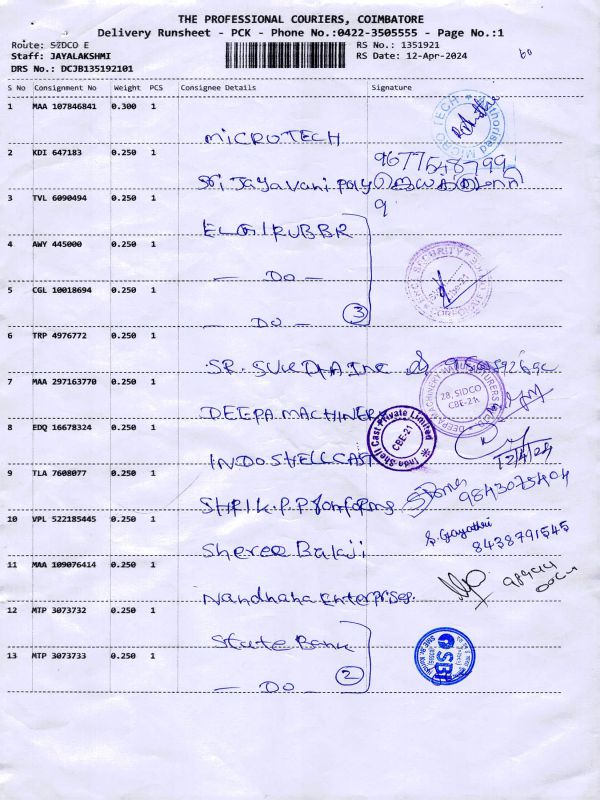 THE PROFESSIONAL COURIERS, COIMBATORE
Delivery Runsheet - PCK - Phone No.:0422-3505555 - Page No.:1
Route: SIDCO E
RS No.: 1351921
60
Staff: JAYALAKSHMI
RS Date: 12-Apr-2024
DRS No.: DCJB135192101
S No Consignment No Weight PCS Consignee Details Signature
1 MAA 107846841 0.300 1
MICROTECH
MICRO TECH Authorised
2 KDI 647183 0.250 1
Sri Jayavani poly
9677548799
3 TVL 6090494 0.250 1
ELGI RUBBR
4 AWY 445000 0.250 1
— DO —
SECURITY
5 CGL 10018694 0.250 1
— DO —
3
6 TRP 4976772 0.250 1
SR. Inc
7 MAA 297163770 0.250 1
DEEPA MACHINERY
DEEPA MACHINERY MANUFACTURERS
28, SIDCO
CBE-21
8 EDQ 16678324 0.250 1
INDO SHELL CAST
Indo Shell Cast Private Limited
CBE-21
12/4/24
9 TLA 7608077 0.250 1
SHRI K.P.P
9843075404
10 VPL 522185445 0.250 1
Sheree Balaji
S. Gayathri
8438791545
11 MAA 109076414 0.250 1
Nandhana Enterprises
12 MTP 3073732 0.250 1
State Bank
SBI
13 MTP 3073733 0.250 1
— DO —
2